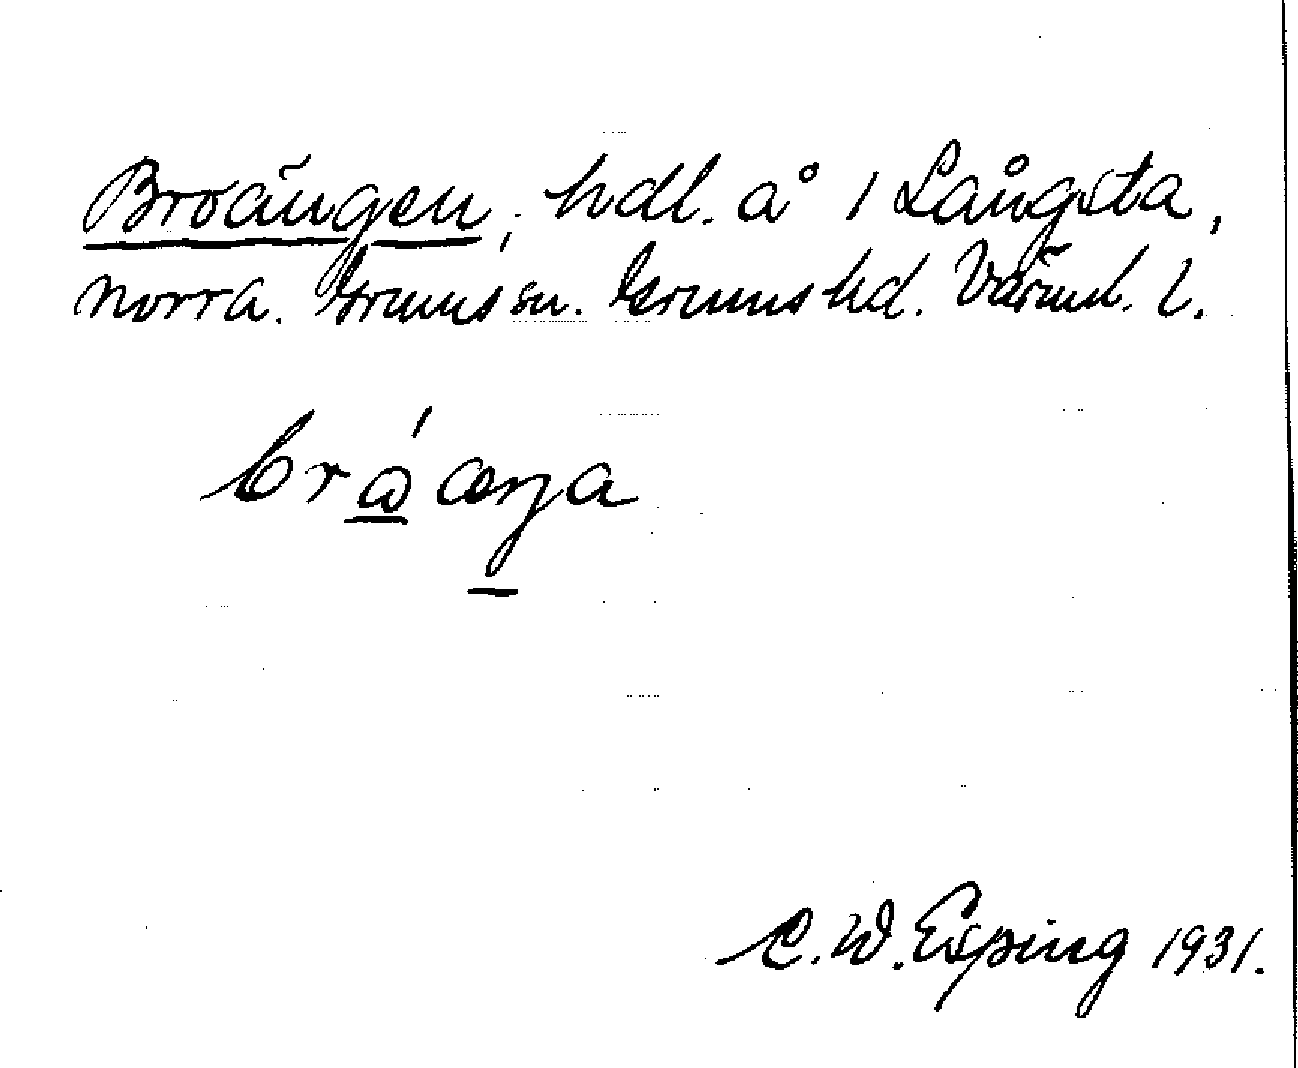 Broängen, hdl. å 1 Långsta,
norra. Grums sn. Grums hd. Värml. l.
brⱺ́æŋa
C. W. Esping 1931.